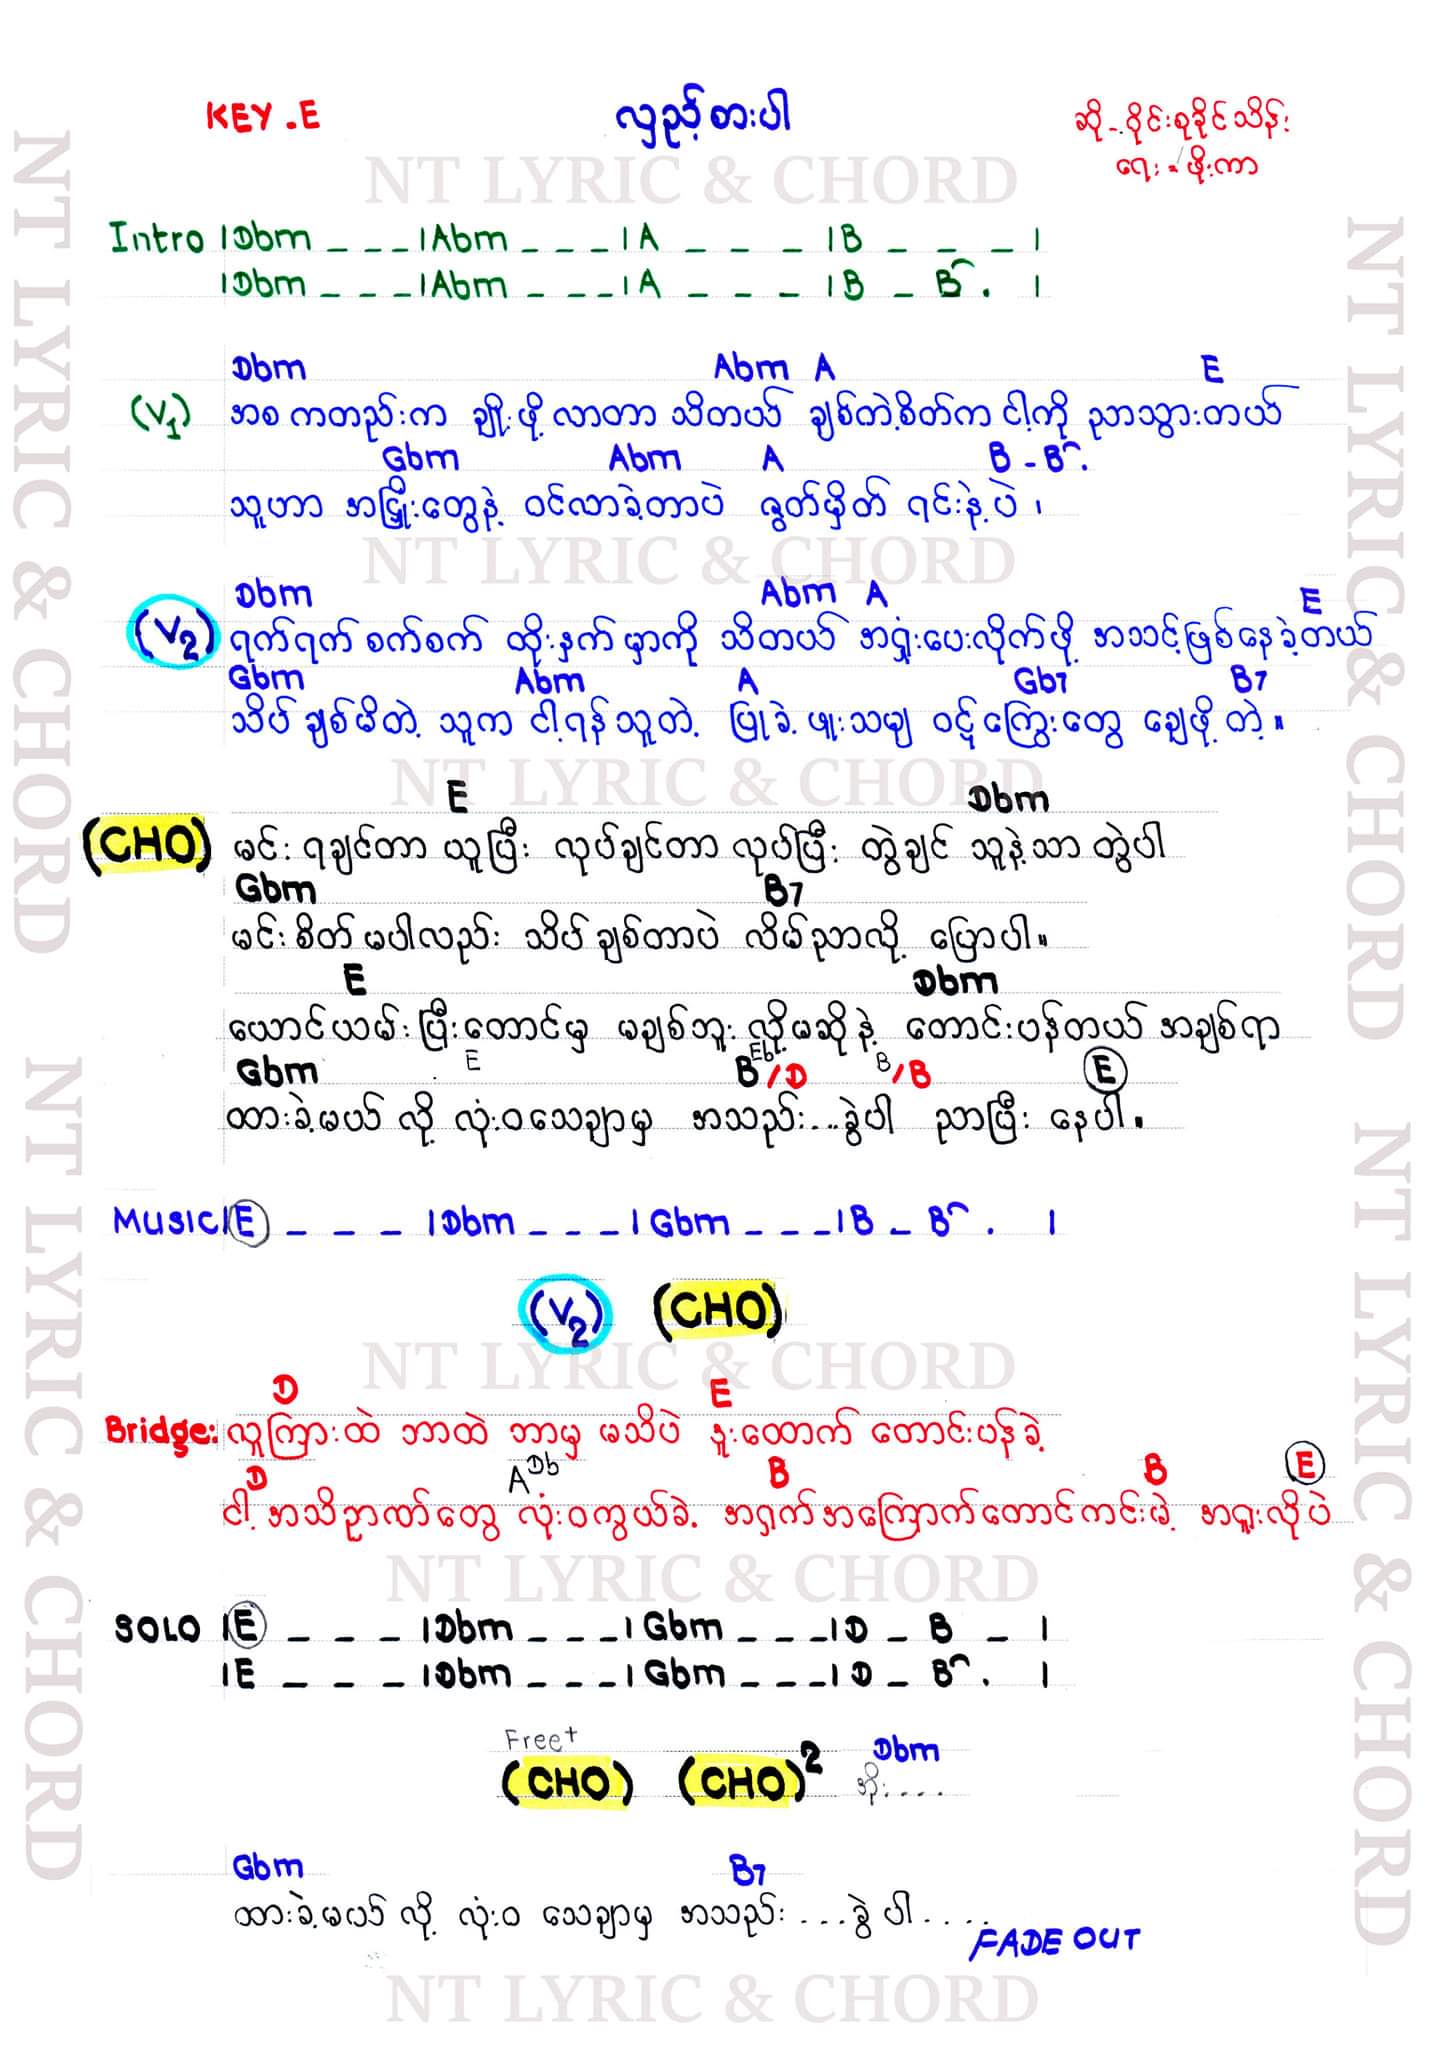 KEY - E
လှည့်စားပါ
ဆို - ဝိုင်းစုခိုင်သိန်း
ရေး - ဖိုးကာ
NT LYRIC & CHORD
Intro |Dbm _ _ _ |Abm _ _ _ |A _ _ _ |B _ _ _ |
|Dbm _ _ _ |Abm _ _ _ |A _ _ _ |B _ B . |
Dbm Abm A E
(V1) အစ ကတည်းက ချိုးဖို့ လာတာ သိတယ် ချစ်တဲ့စိတ်က ငါ့ကို ညာသွားတယ်
Gbm Abm A B - B .
သူဟာ အငြှိုးတွေနဲ့ ဝင်လာခဲ့တာပဲ ဇွတ်မှိတ် ရင်းနဲ့ပဲ ၊
NT LYRIC & CHORD
Dbm Abm A E
(V2) ရက်ရက် စက်စက် ထိုးနှက် မှာကို သိတယ် အရှုံးပေးလိုက်ဖို့ အသင့်ဖြစ်နေခဲ့တယ်
Gbm Abm A Gb7 B7
သိပ် ချစ်မိတဲ့ သူက ငါ့ရန်သူတဲ့ ပြုခဲ့ဖူးသမျှ ဝဋ်ကြွေးတွေ ချေဖို့ တဲ့ ။
NT LYRIC & CHORD
E Dbm
(CHO) မင်း ရချင်တာ ယူပြီး လုပ်ချင်တာ လုပ်ပြီး တွဲချင် သူနဲ့သာ တွဲပါ
Gbm B7
မင်း စိတ် မပါလည်း သိပ် ချစ်တာပဲ လိမ်ညာလို့ ပြောပါ ။
E Dbm
ယောင်ယမ်း ပြီးတောင်မှ မချစ်ဘူး လို့မဆိုနဲ့ တောင်းပန်တယ် အချစ်ရာ
Gbm E B Eb /D B /B E
ထားခဲ့မယ် လို့ လုံးဝသေချာမှ အသည်း...ခွဲပါ ညာပြီး နေပါ ။
MUSIC |E _ _ _ |Dbm _ _ _ |Gbm _ _ _ |B _ B . |
(V2) (CHO)
NT LYRIC & CHORD
D E
Bridge: လူကြားထဲ ဘာထဲ ဘာမှ မသိပဲ ဒူးထောက် တောင်းပန်ခဲ့
D A Db B B E
ငါ့ အသိဉာဏ်တွေ လုံးဝကွယ်ခဲ့ အရှက်အကြောက်တောင်ကင်းမဲ့ အရူးလိုပဲ
NT LYRIC & CHORD
SOLO |E _ _ _ |Dbm _ _ _ |Gbm _ _ _ |D _ B _ |
|E _ _ _ |Dbm _ _ _ |Gbm _ _ _ |D _ B . |
Free+
(CHO) (CHO)2 Dbm
အိုး....
Gbm B7
ထားခဲ့မယ် လို့ လုံးဝ သေချာမှ အသည်း ...ခွဲ ပါ .....
FADE OUT
NT LYRIC & CHORD
NT LYRIC & CHORD
NT LYRIC & CHORD
NT LYRIC & CHORD
NT LYRIC & CHORD